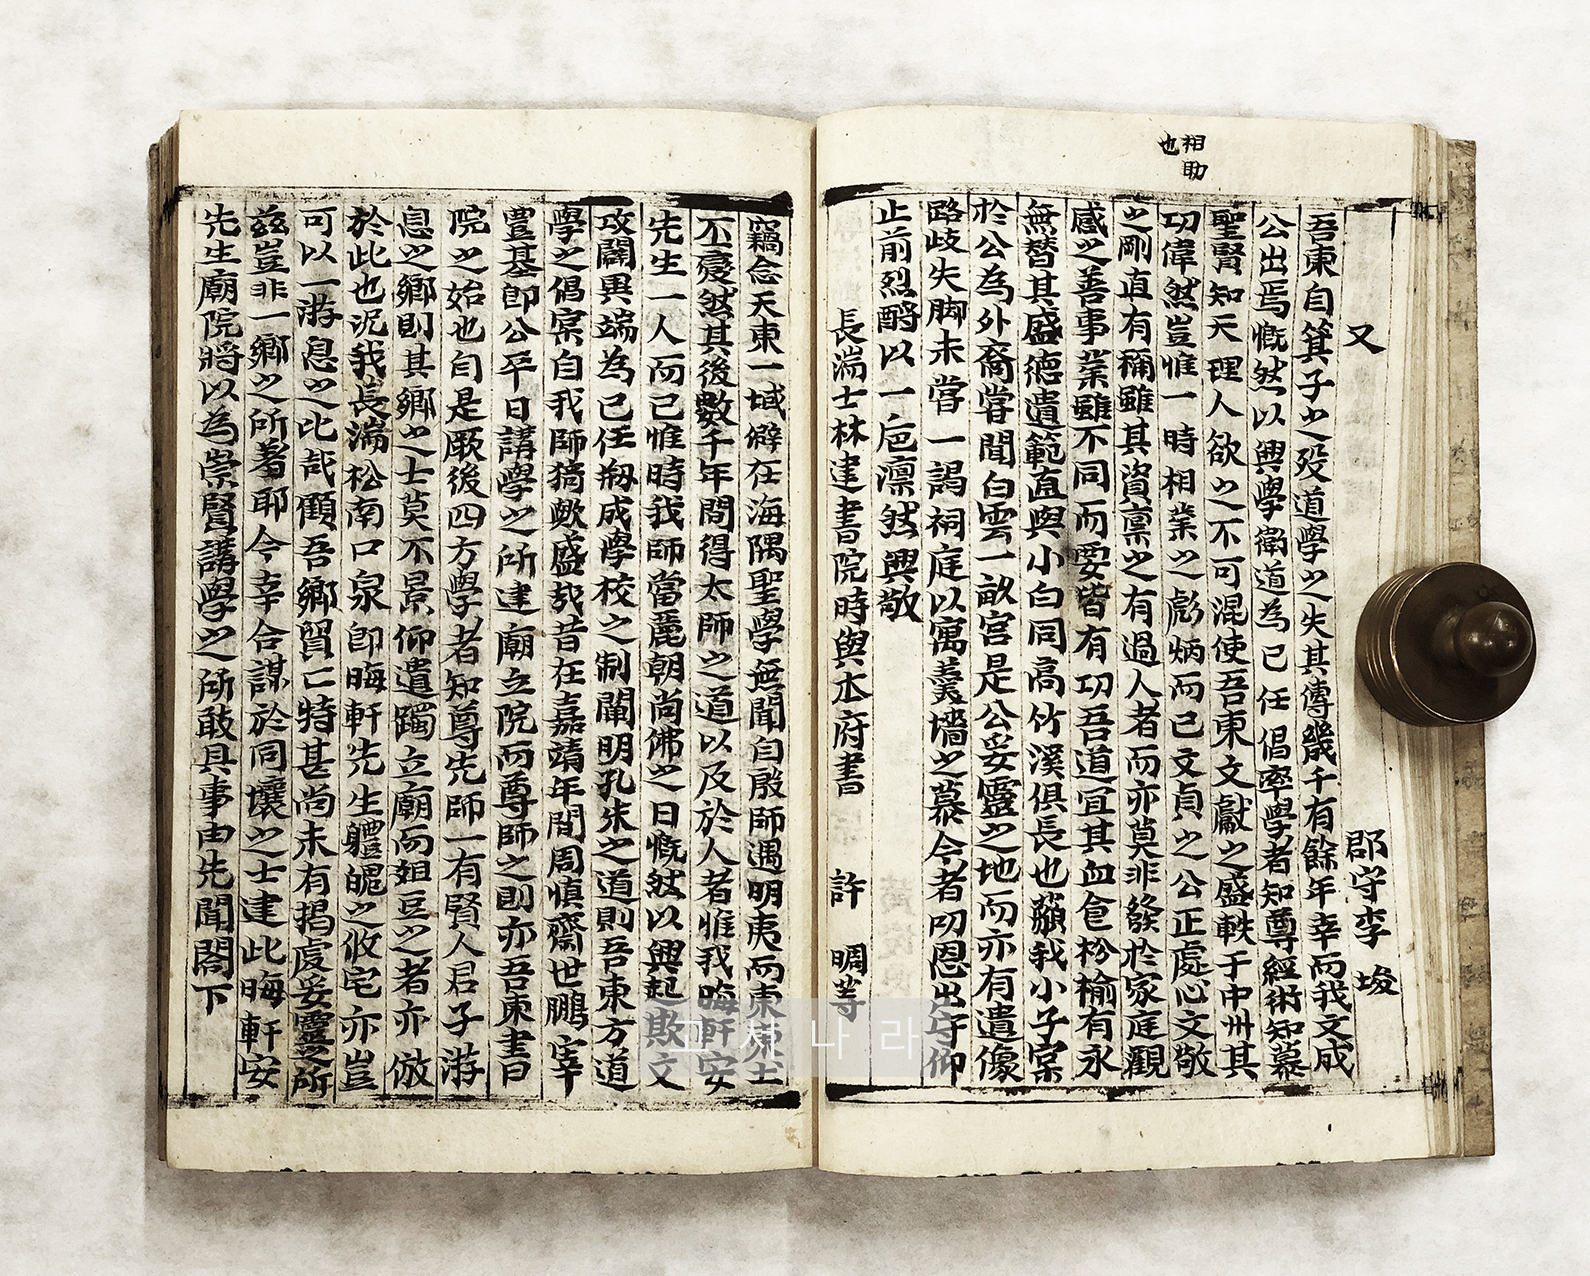 相助
也
又 郡守李埈
吾東自箕子之歿道學之失其傳幾千有餘年幸而我文成
公出焉慨然以興學衛道為己任倡率學者知尊經術知慕
聖賢知天理人欲之不可混使吾東文獻之盛軼于中州其
功偉然豈惟一時相業之彪炳而已文貞之公正處心文敬
之剛直有稱雖其資稟之有過人者而亦莫非發於家庭觀
感之善事業雖不同而要皆有功吾道宜其血食枌榆有永
無替其盛德遺範直與小白同高竹溪俱長也顧我小子棠
於公為外裔嘗聞白雲一畝宮是公妥靈之地而亦有遺像
路歧失脚未嘗一謁祠庭以寓羹墻之慕今者叨恩出守仰
止前烈酹以一卮凛然興敬
長湍士林建書院時與本府書 許 㫶等
竊念天東一域僻在海隅聖學無聞自殷師遇明夷而東東土
不變然其後數千年間得太師之道以及於人者惟我晦軒安
先生一人而已惟時我師當麗朝尚佛之日慨然以興起斯文
攻闢異端為己任刱成學校之制闡明孔朱之道則吾東方道
學之倡宲自我師猗歟盛哉昔在嘉靖年間周慎齋世鵬宰
豊基卽公平日講學之所建廟立院而尊師之則亦吾東書
院之始也自是厥後四方學者知尊先師一有賢人君子游
息之鄉則其鄉之士莫不景仰遺躅立廟而俎豆之者亦倣
於此也况我長湍松南口泉卽晦軒先生軆魄之攸宅亦豈
可以一游息之比哉顧吾鄉貿亡特甚尚未有揭虔妥靈之所
兹豈非一鄉之所羞耶今幸合謀於同壤之士建此晦軒安
先生廟院將以為崇賢講學之所敢具事由先聞閤下
고서나라